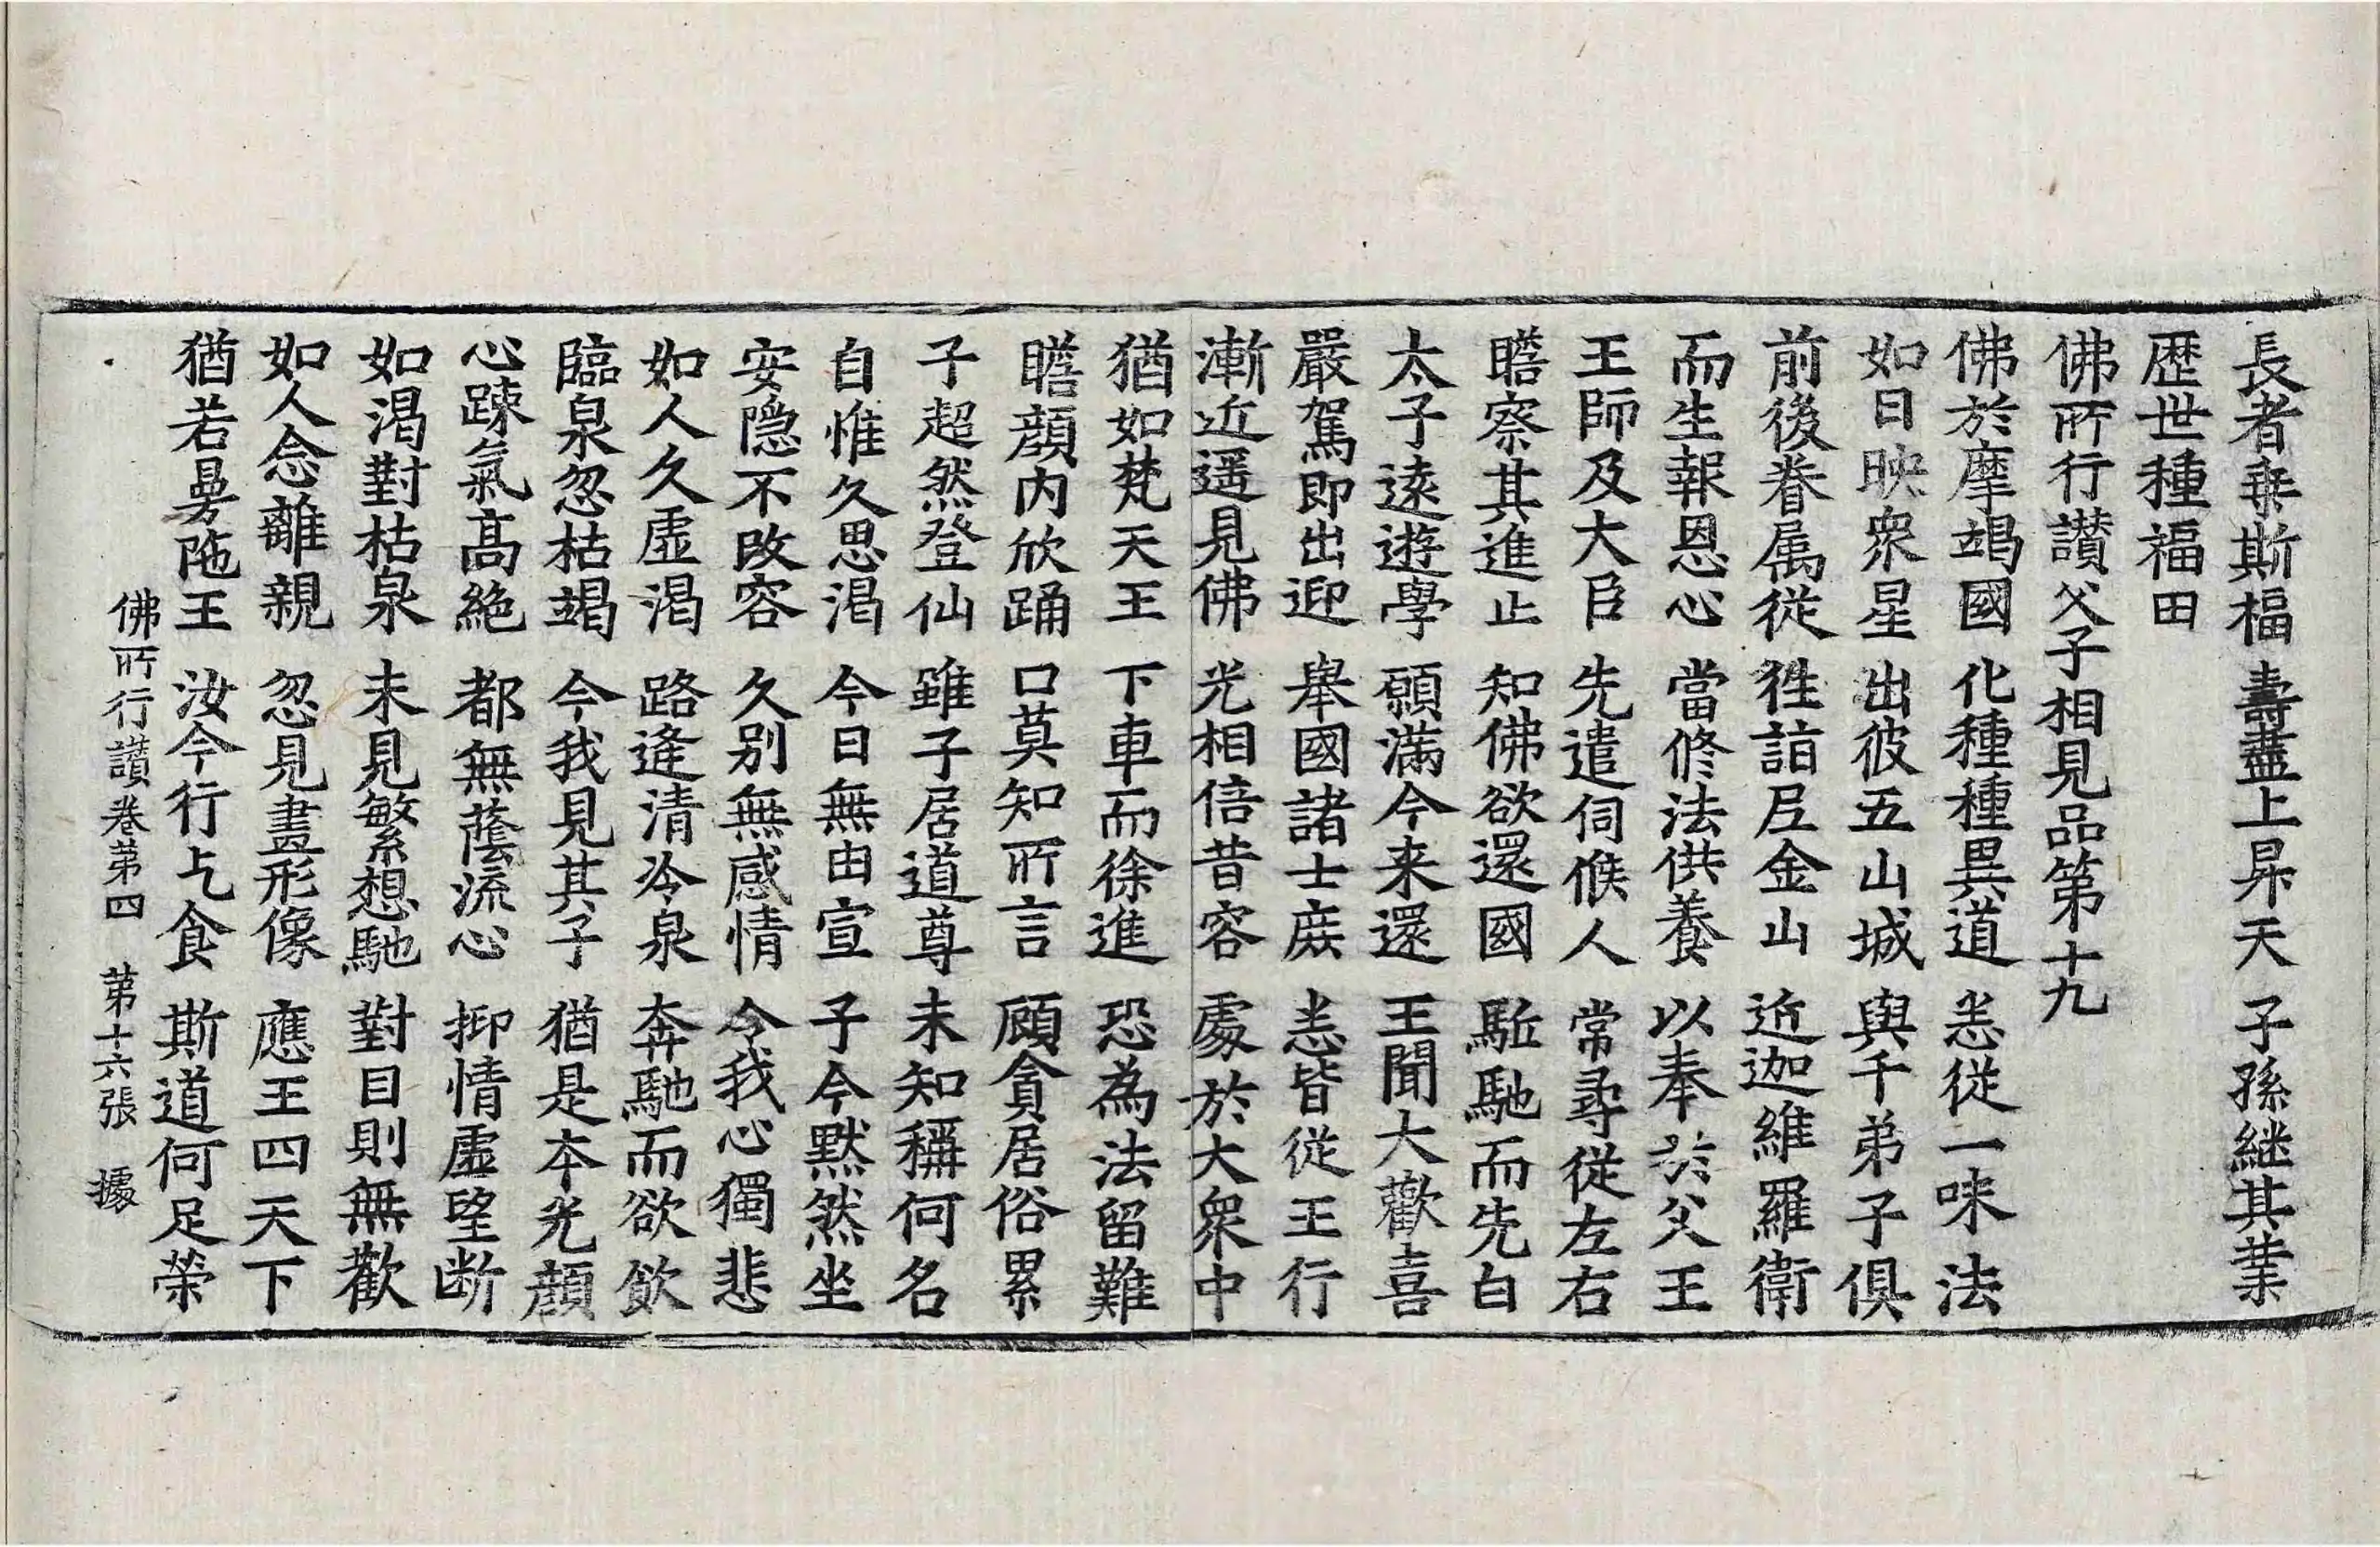 長者乗斯福 壽盡上昇天 子孫継其業
歴世種福田
佛所行讃父子相見品第十九
佛於摩竭國 化種種異道 悉從一味法
如日映衆星 出彼五山城 與千弟子俱
前後眷属從 往詣𡰱金山 近迦維羅衛
而生報恩心 當修法供養 以奉於父王
王師及大臣 先遣伺候人 常尋從左右
瞻察其進止 知佛欲還國 駈馳而先白
太子遠遊學 願滿今来還 王聞大歡喜
嚴駕即出迎 舉國諸士庶 悉皆從王行
漸近遥見佛 光相倍昔容 處於大衆中
猶如梵天王 下車而徐進 恐為法留難
瞻顔內欣踊 口莫知所言 顧貪居俗累
子超然登仙 雖子居道尊 未知稱何名
自惟久思渴 今日無由宣 子今默然坐
安隠不改容 久别無感情 令我心獨悲
如人久虛渴 路逢清冷泉 奔馳而欲飲
臨泉忽枯竭 今我見其子 猶是本光顔
心踈氣高絶 都無蔭流心 抑情虛望断
如渴對枯泉 未見繁想馳 對目則無歡
如人念離親 忽見畫形像 應王四天下
猶若曼陁王 汝今行乞食 斯道何足榮
佛所行讃卷第四 第十六張 據